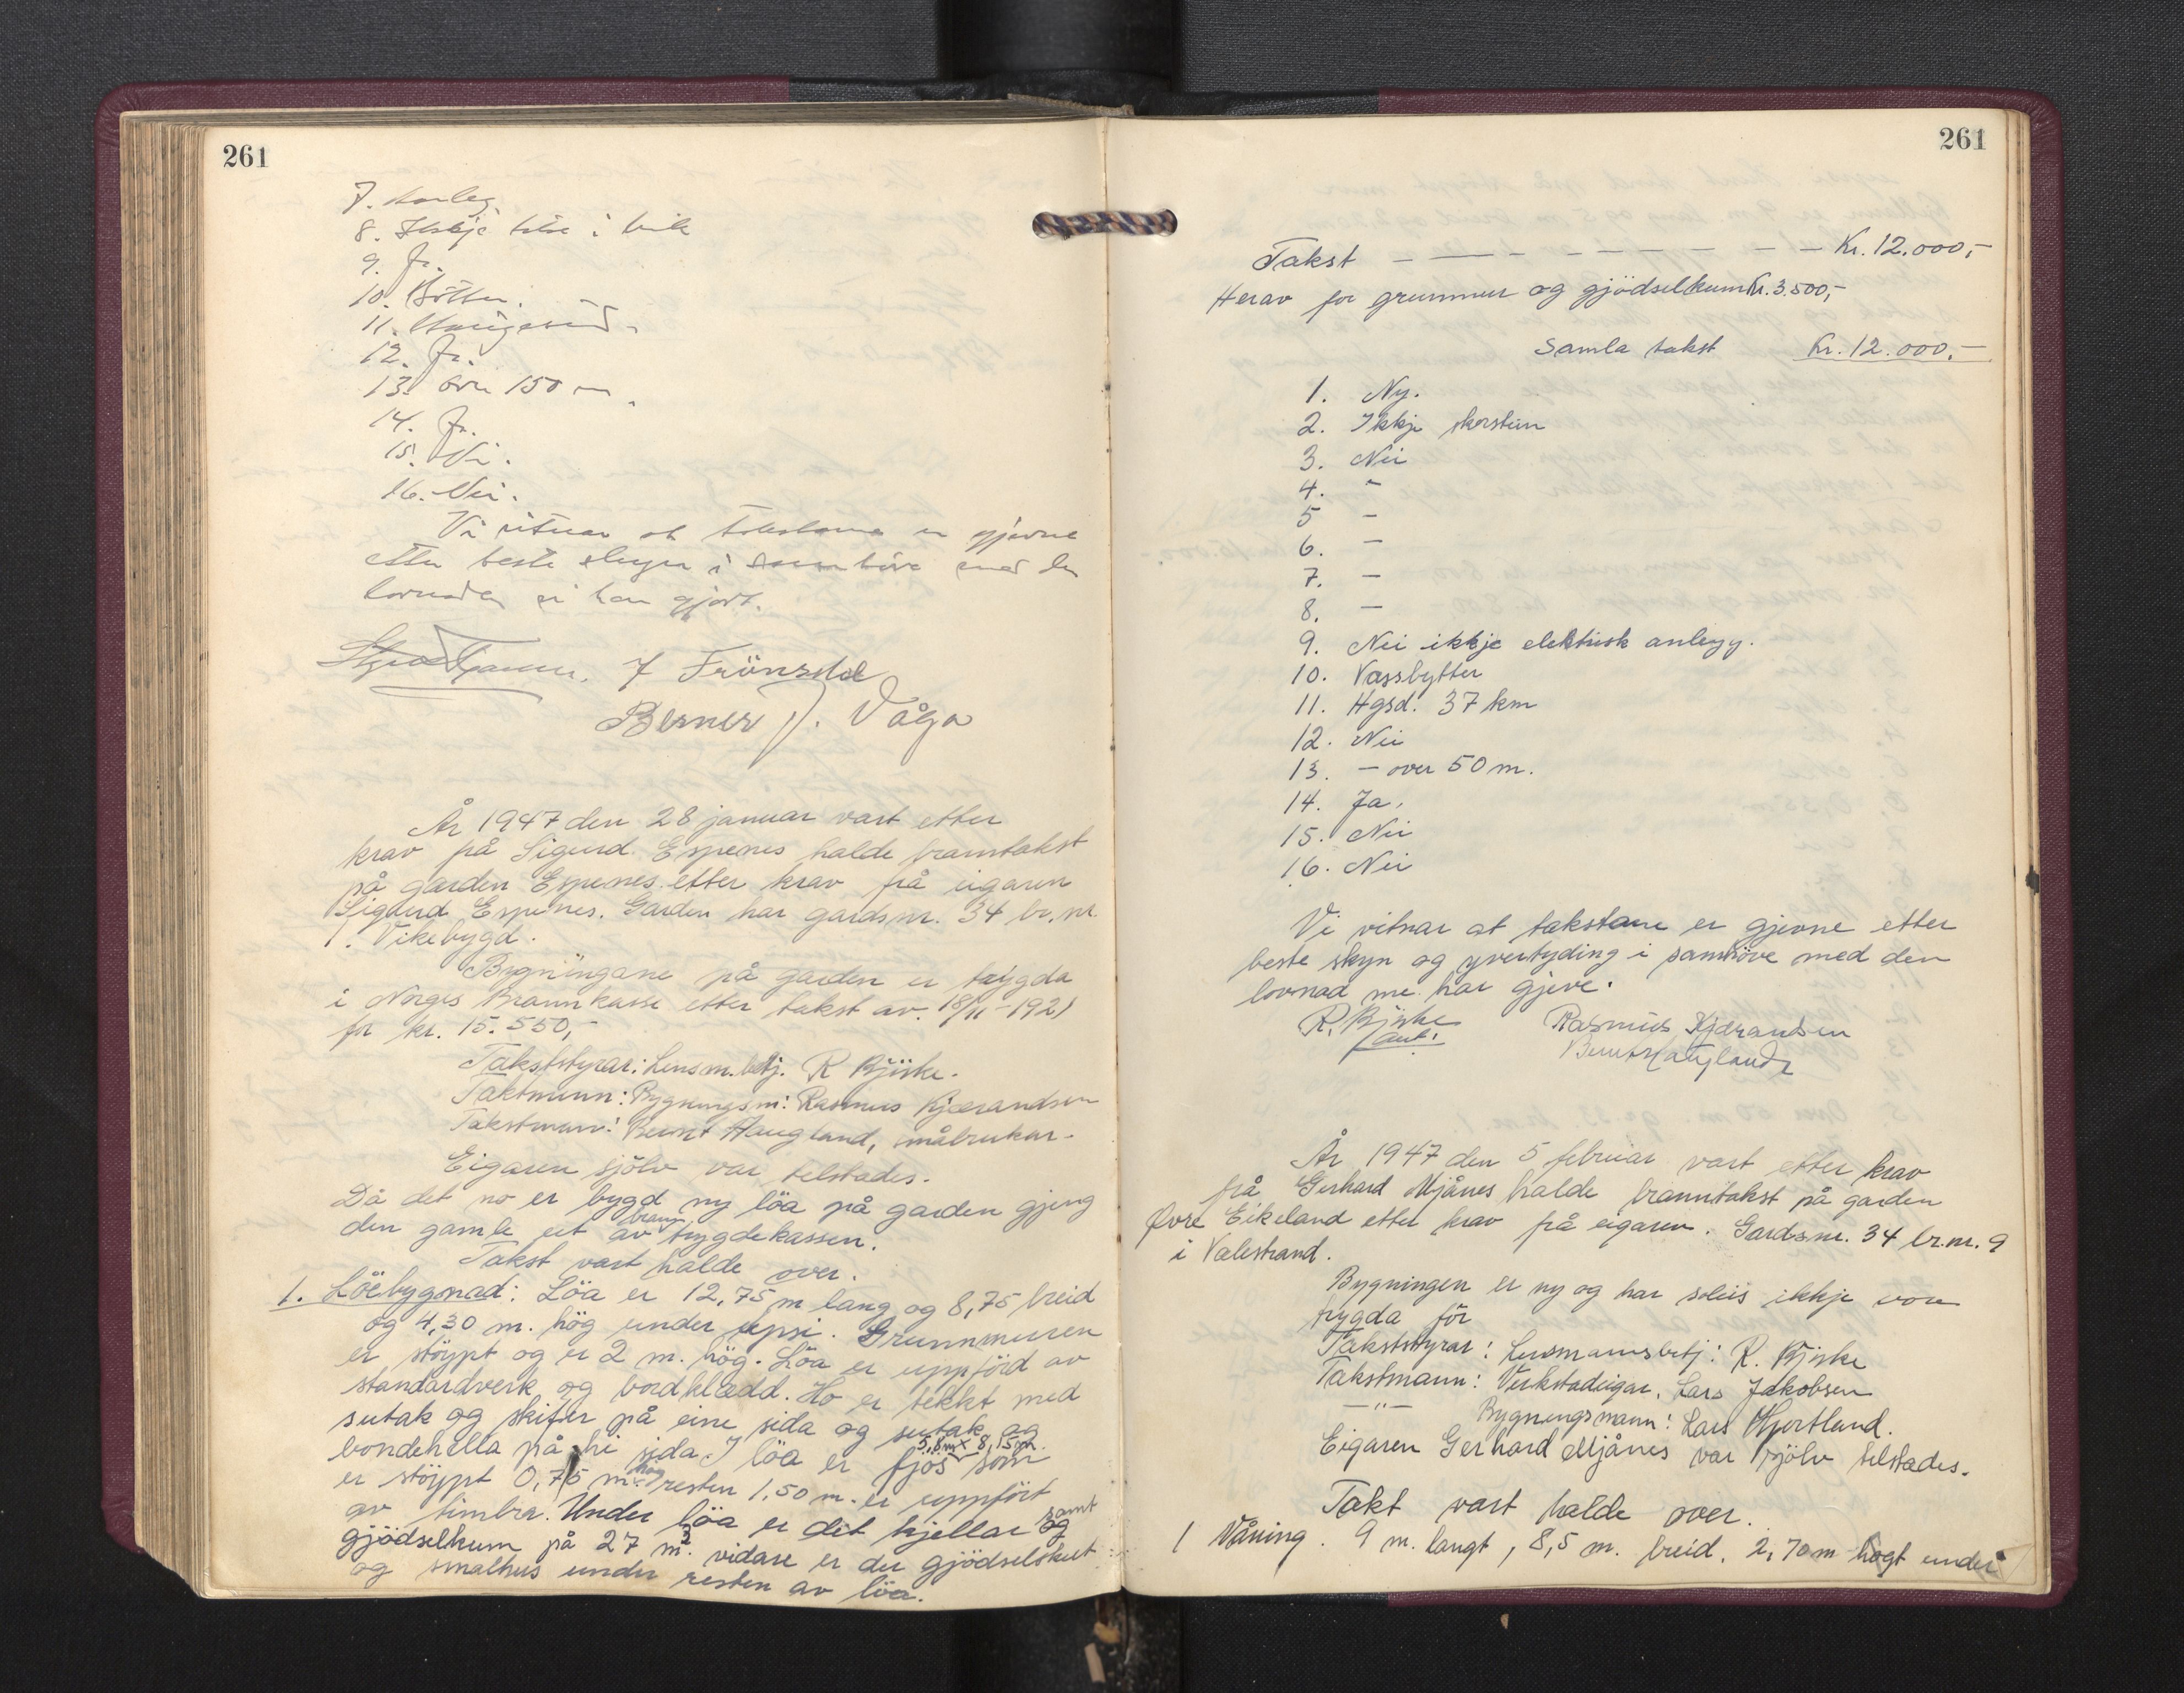 261
7.
8. Ikkje i bruk
9. Ja.
10. Bötter.
11. Haugesund.
12. Ja.
13. över 150 m.
14. Ja.
15. Nei.
16. Nei.
Vi vitnar at takstane er gjevne
etter beste skyn i samhöve med den
lovnaden vi har gjort.
J Frönsdal
Berner J. Våga
År 1947 den 28 januar vart etter
krav på Sigurd Espenes halde branntakst
på garden Espenes etter krav frå eigaren
Sigurd Espenes. Garden har gardsnr. 34 br.nr.
1. Vikebygd.
Bygningane på garden er trygda
i Norges Brannkasse etter takst av. 18/11-1921
for kr. 15.550,-
Takststyrar: Lensm.betj. R Bjiske.
Takstmenn: Bygningsm: Rasmus Kjærandsen
Takstmenn: Bernt Haugland, småbrukar.
Eigaren sjölv var telstades.
Då det no er bygd ny löa på garden gjeng
den gamle ut av brann trygdekassen.
Takst vart halde over.
1. Löebygnad: Löa er 12,75 m lang og 8,75 breid
og 4,30 m. hög under upsi. Grunnmuren
er stöypt og er 2 m. hög. Löa er uppförd av
standardverk og bordklædd. Ho er tekkt med
sutak og skifer på eine sida og sutak og
bondehella på hi sida. I löa er fjös 5,8m x 8,15m. som
er stöypt 0,75 m. hög resten 1,50 m. er uppfört
av timbra. Under löa er det kjellar og samt
gjödselkum på 27 m³. vidare er der gjödselskut
og smalhus under resten av löa.
261
Takst - - - - - - - - Kr. 12.000,-
Herav for grunnmur og gjödselkum Kr. 3.500,-
Samla takst Kr. 12.000,-
1. Ny.
2. Ikkje skorstein
3. Nei
4. -
5 -
6. -
7. -
8. -
9. Nei ikkje elektrisk anlegg.
10. Vassbytter
11. Hgsd. 37 km
12. Nei
13. - over 50 m.
14. Ja.
15. Nei
16. Nei
Vi vitnar at takstane er gjevne etter
beste skyn og yvertyding i samhöve med den
lovnad me har gjeve.
R. Bjiske Rasmus Kjærandsen
Bernt Haugland
År 1947 den 5 februar vart etter krav
frå Gerhard Mjånes halde branntakst på garden
Øvre Eikeland etter krav frå eigaren. Gardsnr. 34 br.nr. 9
i Valestrand.
Bygningen er ny og har soleis ikkje vore
trygda för
Takststyrar: Lensmannsbetj: R. Bjiske
Takstmann: Verkstadeigar, Lars Jakobsen
—"— Bygningsmann: Lars Hjortland.
Eigaren Gerhard Mjånes var sjölv telstades.
Takt vart halde over.
1 Våning. 9 m. langt, 8,5 m. breid. 2,70 m högt under